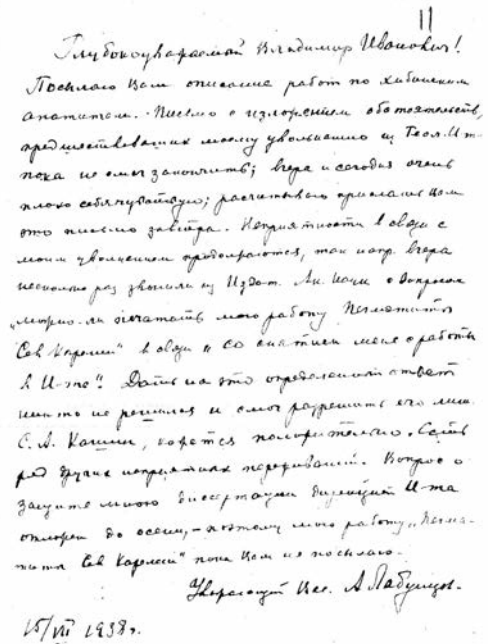 11
Глубокоуважаемый Владимир Иванович!
Посылаю Вам описание работ по хибинским
апатитам. Письмо с изложением обстоятельств,
предшествовавших моему увольнению из Геол. И-та
пока не смог закончить; вчера и сегодня очень
плохо себя чувствую; расчитываю прислать Вам
это письмо завтра. Неприятности в связи с
моим увольнением продолжаются, так напр. вчера
несколько раз звонили из Издат. Ак. Наук с вопросом
„можно-ли печатать мою работу Пегматиты
Сев Карелии“ в связи со снятием меня с работы
в И-те“. Дать на это определенный ответ
никто не решился и смог разрешить его лишь
С. А. Кашин, кажется положительно. Есть
ряд других неприятных переживаний. Вопрос о
защите мною диссертации дирекцией И-та
отложен до осени, – поэтому мою работу „Пегма-
титы Сев Карелии“ пока Вам не посылаю.
Уважающий Вас А Лабунцов.
15/VII 1938 г.